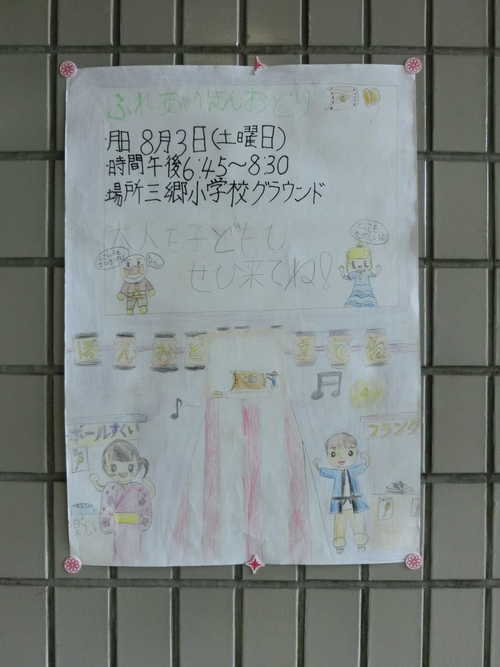 ふれあいぼんおどり
月日 8月3日(土曜日)
時間 午後6:45〜8:30
場所 三郷小学校グラウンド
大人も子どもも
ぜひ来てね!
ボールすくい
フランク